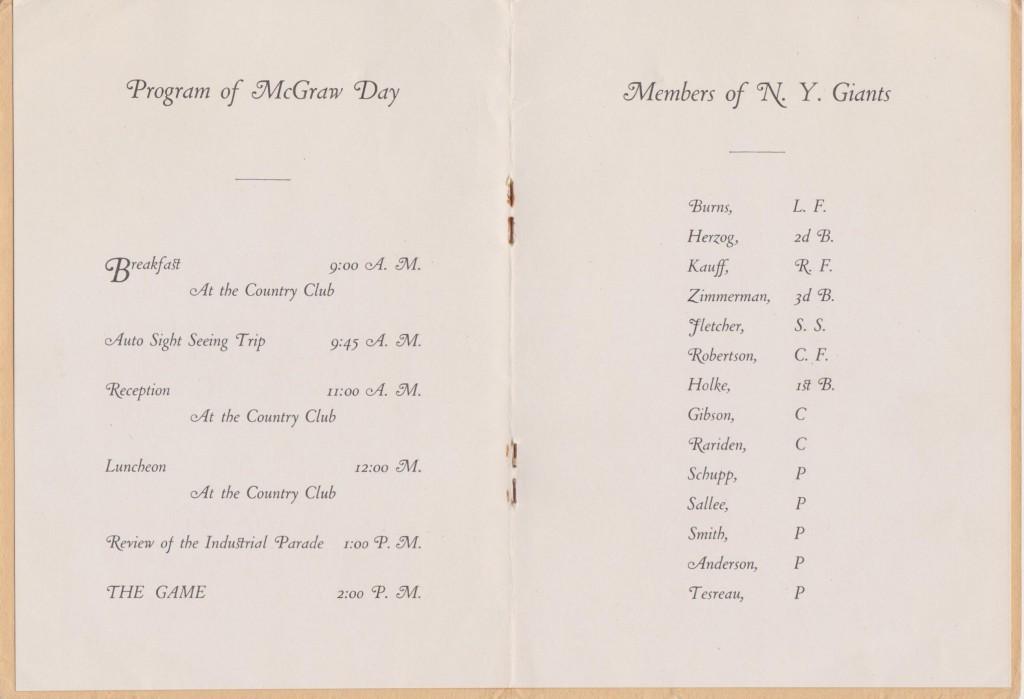 Program of McGraw Day
Breakfast 9:00 A. M.
At the Country Club
Auto Sight Seeing Trip 9:45 A. M.
Reception 11:00 A. M.
At the Country Club
Luncheon 12:00 M.
At the Country Club
Review of the Industrial Parade 1:00 P. M.
THE GAME 2:00 P. M.
Members of N. Y. Giants
Burns, L. F.
Herzog, 2d B.
Kauff, R. F.
Zimmerman, 3d B.
Fletcher, S. S.
Robertson, C. F.
Holke, 1st B.
Gibson, C
Rariden, C
Schupp, P
Sallee, P
Smith, P
Anderson, P
Tesreau, P